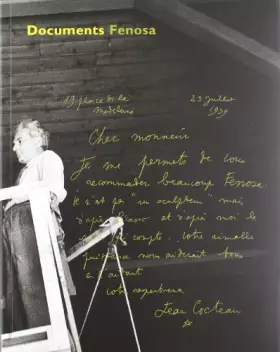 Documents Fenosa
19 place de la 23 juillet
Madeleine 1939
Cher monsieur
Je me permets de vous
recommander beaucoup Fenosa
Il n'est pas "un sculpteur" mais
d'après Picasso et d'après moi le
qui compte. votre aimable
nous aiderait tous
votre
Jean Cocteau